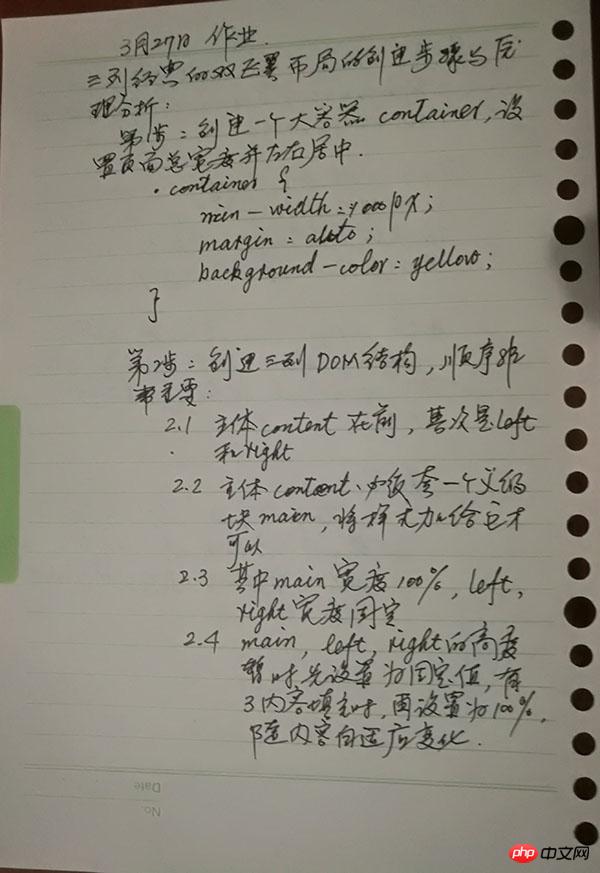 3月27日 作业.
三列经典的双飞翼布局的创建步骤与原
理分析:
第1步:创建一个大容器 container,设
置页面总宽度并左右居中.
.container {
min-width:1000px;
margin: auto;
background-color: yellow;
}
第2步:创建三列DOM结构,顺序非
常重要:
2.1 主体content在前,其次是left
和right
2.2 主体content.必须套一个父级
块main,将样式加给它才
可以
2.3 其中main宽度100%, left,
right宽度固定
2.4 main, left, right的高度
暂时先设置为固定值,有
了内容填充时,再设置为100%,
随内容自适应变化.
Date
No.
php 中文网